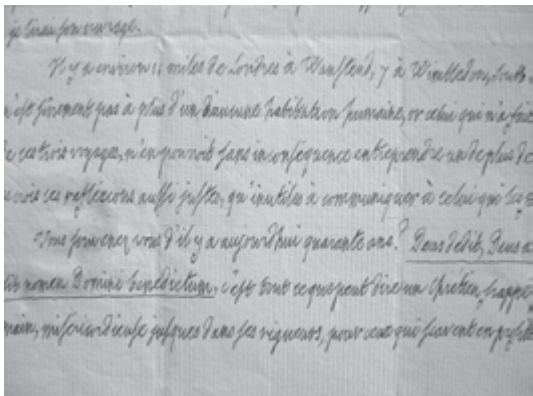 je ouvrage.
Il y a environ 11 miles de Londres à Wanstead, 7 à Wimbledon,
n'est surement pas à plus d'un d'aucune habitation humaine, or celui qui n'a fait
de ces trois voyages, n'en pouvoit sans inconséquence entreprendre un de plus de
crois ces reflexions aussi justes, qu'inutiles à communiquer à celui qui les
Vous souvenez vous d'il y a aujourd'hui quarante ans? Deus dedit, Deus a
nomen Domini benedictum, c'est tout ce que peut dire un Chrétien, frappé
main, misericordieuse jusques dans ses rigueurs, pour ceux qui sçavent en